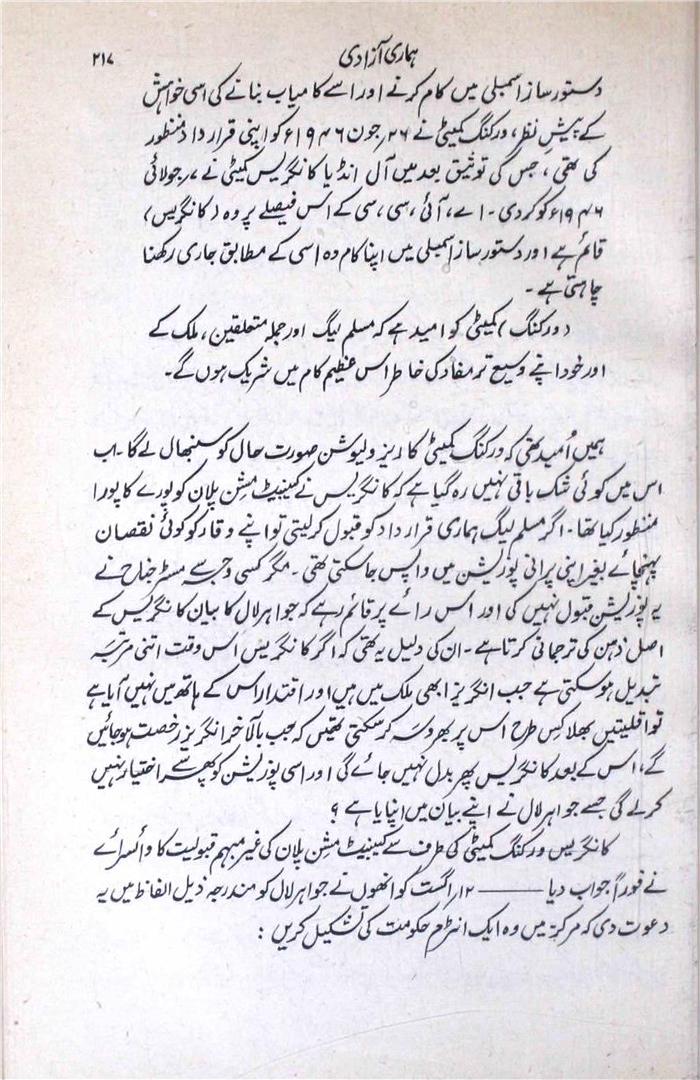 ہماری آزادی ۲۱۷
دستور ساز اسمبلی میں کام کرنے اور اسے کامیاب بنانے کی اسی خواہش
کے پیش نظر، ورکنگ کمیٹی نے ۲۶؍جون ۱۹۴۶ء کو اپنی قرار داد منظور
کی تھی، جس کی توثیق بعد میں آل انڈیا کانگریس کمیٹی نے ۷؍جولائی
۱۹۴۶ء کو کر دی۔ اے، آئی، سی، سی کے اس فیصلے پر وہ (کانگریس)
قائم ہے اور دستور ساز اسمبلی میں اپنا کام وہ اسی کے مطابق جاری رکھنا
چاہتی ہے۔
(ورکنگ) کمیٹی کو امید ہے کہ مسلم لیگ اور جملہ متعلقین، ملک کے
اور خود اپنے وسیع تر مفاد کی خاطر اس عظیم کام میں شریک ہوں گے۔
ہمیں اُمید تھی کہ ورکنگ کمیٹی کا ریزولیوشن صورت حال کو سنبھال لے گا۔ اب
اس میں کوئی شک باقی نہیں رہ گیا ہے کہ کانگریس نے کیبنیٹ مشن پلان کو پورے کا پورا
منظور کیا تھا۔ اگر مسلم لیگ ہماری قرار داد کو قبول کر لیتی تو اپنے وقار کو کوئی نقصان
پہنچائے بغیر اپنی پرانی پوزیشن میں واپس جا سکتی تھی۔ مگر کسی وجہ سے مسٹر جناح نے
یہ پوزیشن قبول نہیں کی اور اس رائے پر قائم رہے کہ جواہر لال کا بیان کانگریس کے
اصل ذہن کی ترجمانی کرتا ہے۔ ان کی دلیل یہ تھی کہ اگر کانگریس اس وقت اتنی مرتبہ
تبدیل ہو سکتی ہے جب انگریز ابھی ملک میں ہیں اور اقتدار اس کے ہاتھ میں نہیں آیا ہے
تو اقلیتیں بھلا کس طرح اس پر بھروسہ کر سکتی تھیں کہ جب بالآخر انگریز رخصت ہو جائیں
گے، اس کے بعد کانگریس پھر بدل نہیں جائے گی اور اسی پوزیشن کو پھر سے اختیار نہیں
کر لے گی جسے جواہر لال نے اپنے بیان میں اپنایا ہے؟
کانگریس ورکنگ کمیٹی کی طرف سے کیبنیٹ مشن پلان کی غیر مبہم قبولیت کا وائسرائے
نے فوراً جواب دیا —— ۱۲؍اگست کو انھوں نے جواہر لال کو مندرجہ ذیل الفاظ میں یہ
دعوت دی کہ مرکز میں وہ ایک انٹرم حکومت کی تشکیل کریں: